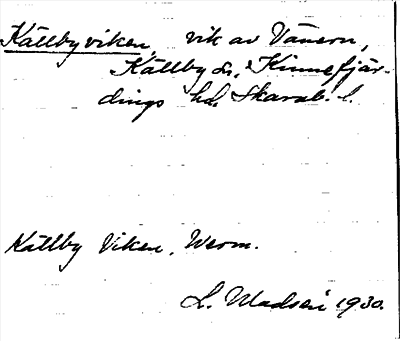 Källbyviken, vik av Vänern,
Källby sn, Kinnefjär-
dings hd, Skarab. l.
Källby Viken. Werm.
L. Madsén 1930.